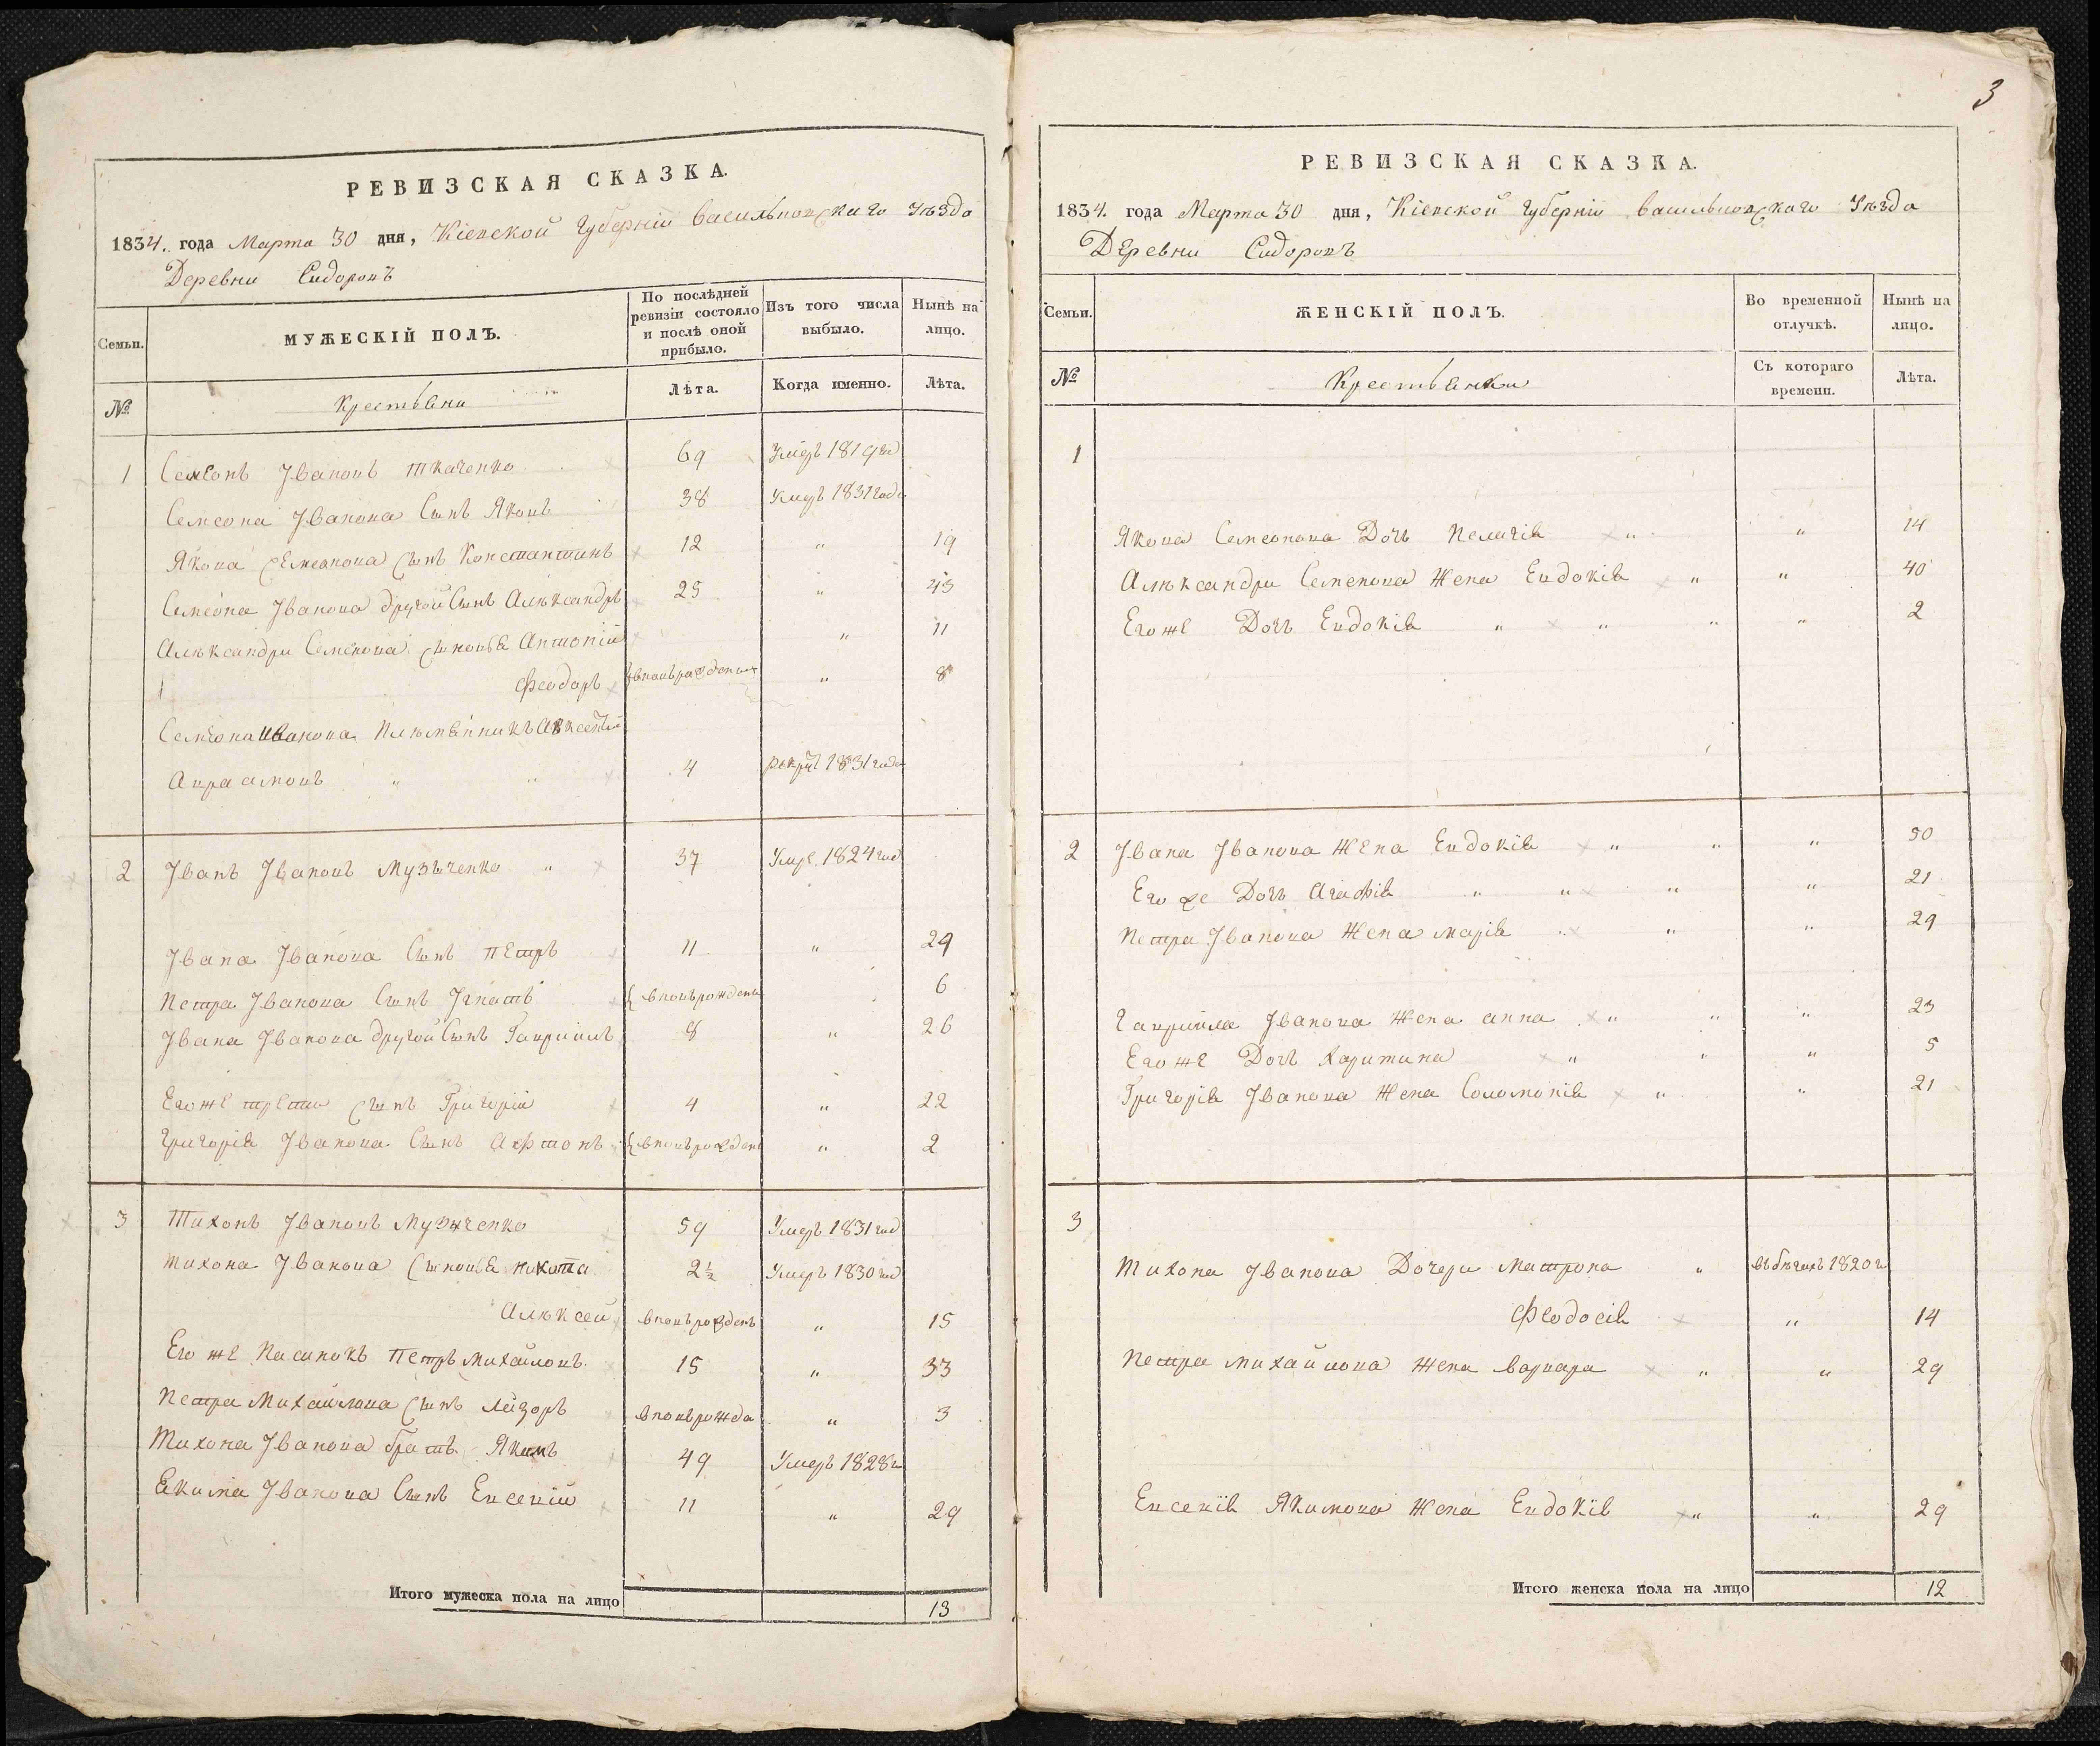 РЕВИЗСКАЯ СКАЗКА.
1834. года Марта 30 дня, Кіевской Губерніи Васильковскаго Уѣзда
Деревни Сидоровъ
Семьи. МУЖЕСКІЙ ПОЛЪ. По послѣдней ревизіи состояло и послѣ оной прибыло. Изъ того числа выбыло. Нынѣ на лицо.
№ Крестьяни Лѣта. Когда именно. Лѣта.
1 Семіонъ Івановъ Ткаченко 69 Умеръ 1819
Семеона Іванова Сынъ Яковъ 38 Умеръ 1831 года
Якова Семеонова Сынъ Константинъ 12 " 19
Семеона Іванова другой Сынъ Алѣксандръ 25 " 43
Алѣксандра Семенова сыновья Антоній " 11
Феодоръ " 8
Семіона Іванова Плѣмѣнникъ
Авраамовъ " " 4 рекрут 1831 года
2 Іванъ Івановъ Музыченко " 37 Умре 1824 год
Івана Іванова Сынъ Петръ 11 " 29
Петра Іванова Сынъ Ігнатъ вновьрождени 6
Івана Іванова другой Сынъ Гавриилъ 8 " 26
Егоже трети Сынъ Григорій 4 " 22
Григорія Іванова Сынъ вновьрожден " 2
3 Тихонъ Івановъ Музиченко 59 Умеръ 1831 год
Тихона Іванова Сыновья Никита 2½ Умеръ 1830 год
Алѣксей вновьрожденъ " 15
Его же Пасинокъ Петръ Михайловъ 15 " 33
Петра Михайлова Сынъ Лазоръ вновьрожда " 3
Тихона Іванова братъ Якимъ 49 Умеръ 1828
Екима Іванова Сынъ Евсевій 11 " 29
Итого мужеска пола на лицо 13
3
РЕВИЗСКАЯ СКАЗКА.
1834. года Марта 30 дня, Кіевской Губерніи Васильковскаго Уѣзда
Деревни Сидоровъ
Семьи. ЖЕНСКІЙ ПОЛЪ. Во временной отлучкѣ. Нынѣ на лицо.
№ Крестьянки Съ котораго времени. Лѣта.
1
Якова Семеонова Дочь Пелагія " " 14
Алѣксандра Семенова Жена Евдокія " " 40
Егоже Дочь Евдокія " " " " 2
2 Івана Іванова Жена Евдокія " " " 50
Егоже Дочь Агафія " " " " 21
Петра Іванова Жена Марія " " " 29
Гавриила Іванова Жена Анна " " " 23
Егоже Дочь Харитина " " " 5
Григорія Іванова Жена Соломонія " " 21
3
Тихона Іванова Дочери Матрона " въ бѣгахъ 1820
Феодосія " 14
Петра Михайлова Жена Варвара " " 29
Евсевія Якимова Жена Евдокія " " 29
Итого женска пола на лицо 12